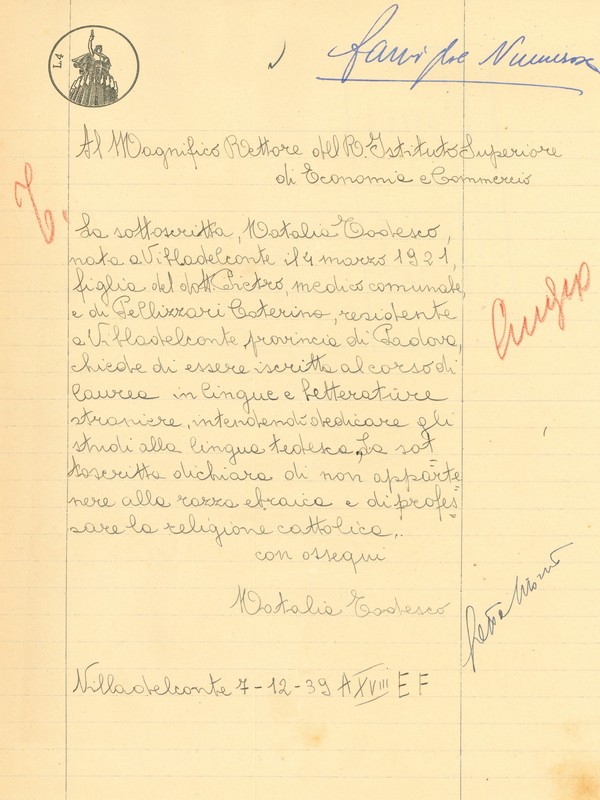 L.4
Al Magnifico Rettore del R. Istituto Superiore
di Economia e Commercio
T.
La sottoscritta, Natalia Todesco,
nata a Villadelconte il 4 marzo 1921,
figlia del dott. Pietro, medico comunale,
e di Pellizzari Caterina, residente
a Villadelconte provincia di Padova,
chiede di essere iscritta al corso di
laurea in lingue e letterature
straniere, intendendo dedicare gli
studi alla lingua tedesca. La sot=
toscritta dichiara di non apparte=
nere alla razza ebraica e di profes=
sare la religione cattolica.
con ossequi
Natalia Todesco
Villadelconte 7-12-39 A XVIII E F